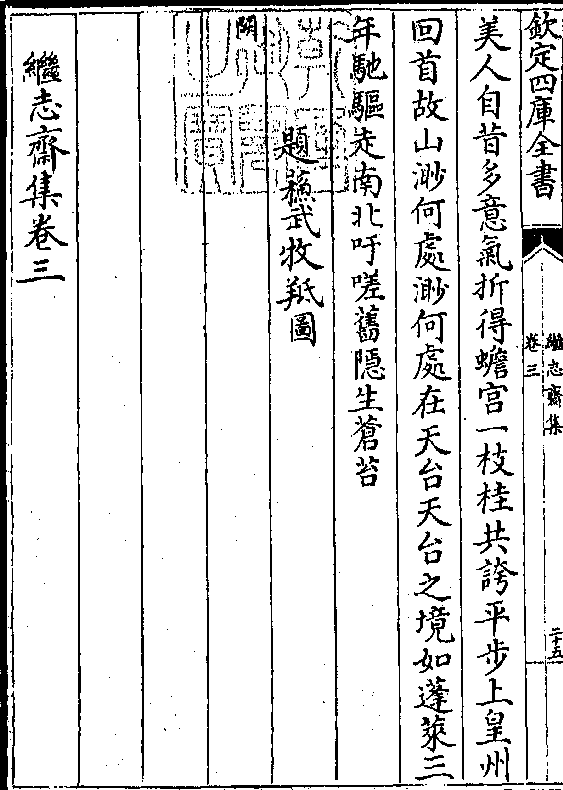 欽定四庫全書
繼志齋集
卷三
二十五
美人自昔多意氣折得蟾宮一枝桂共誇平步上皇州
回首故山渺何處渺何處在天台天台之境如蓬萊三
年馳驅走南北吁嗟舊隱生蒼苔
題蘇武牧羝圖
闕
繼志齋集卷三